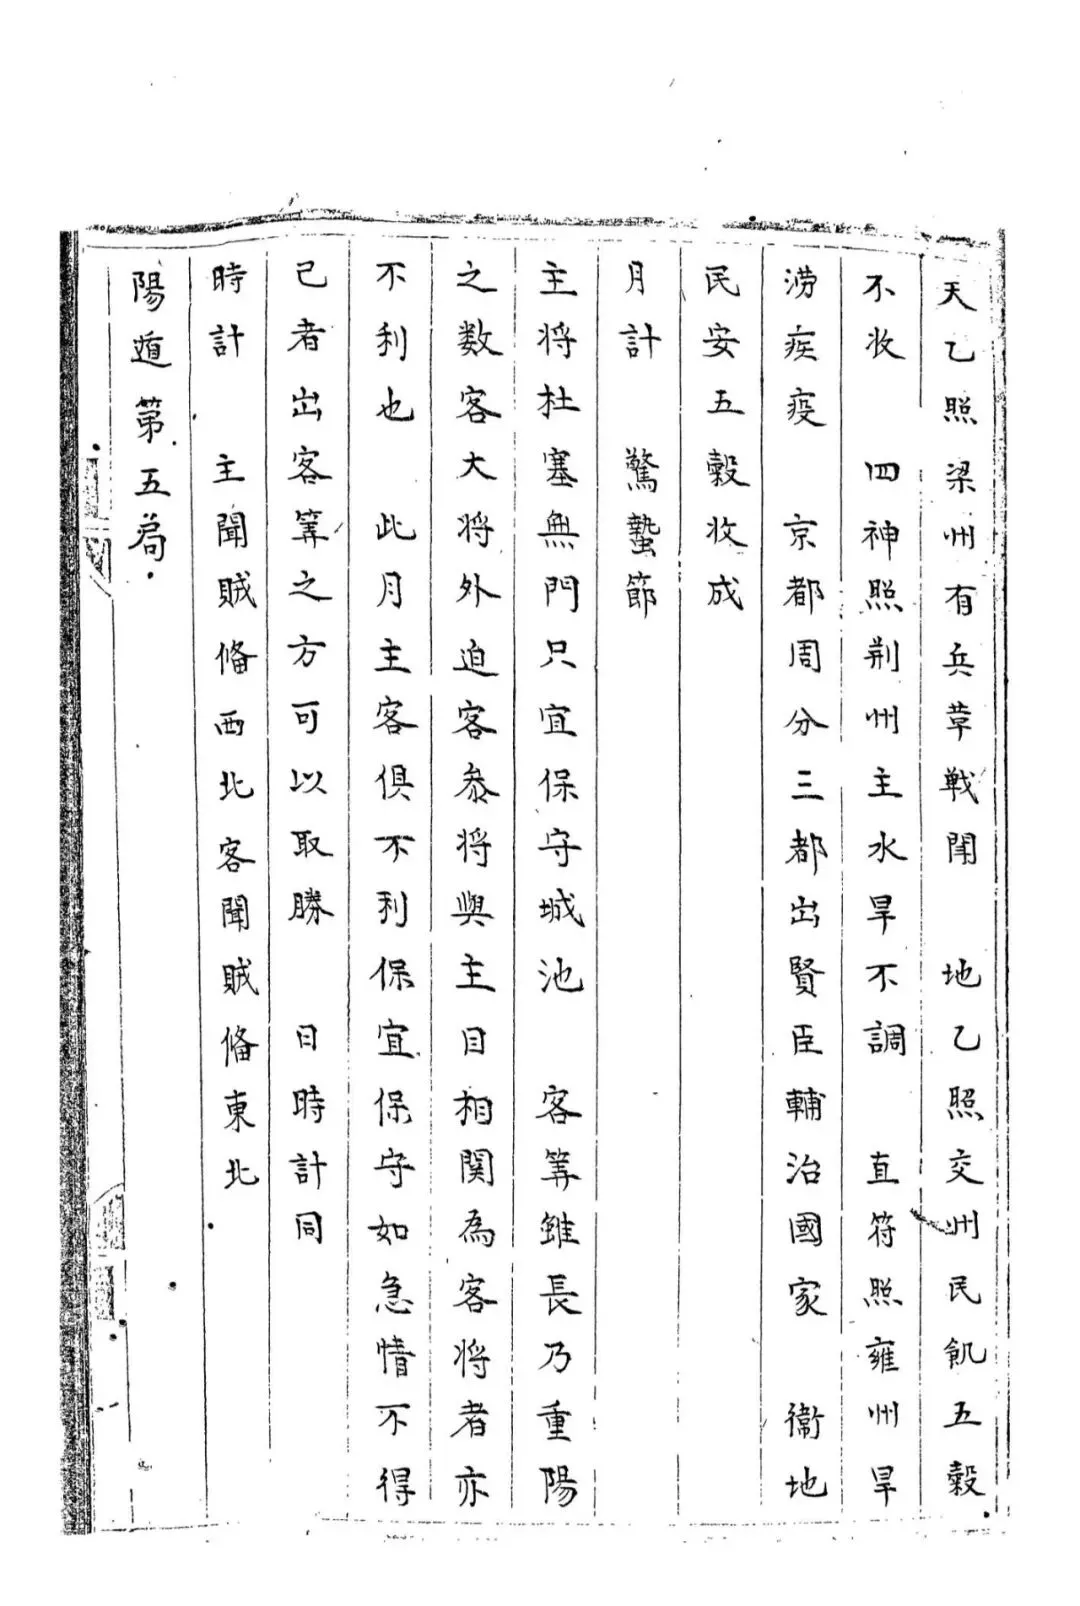 天乙照梁州有兵草戦閗　地乙照交州民飢五穀
不收　四神照荆州主水旱不調　直符照雍州旱
澇疾疫　京都周分三都出賢臣輔治國家　衞地
民安五穀收成
月計　驚蟄節
主将杜塞無門只宜保守城池　客筭雖長乃重陽
之数客大将外迫客叅将與主目相関為客将者亦
不利也　此月主客俱不利保宜保守如急情不得
已者出客筭之方可以取勝　日時計同
時計　主聞賊俻西北客聞賊俻東北
陽遁第五局